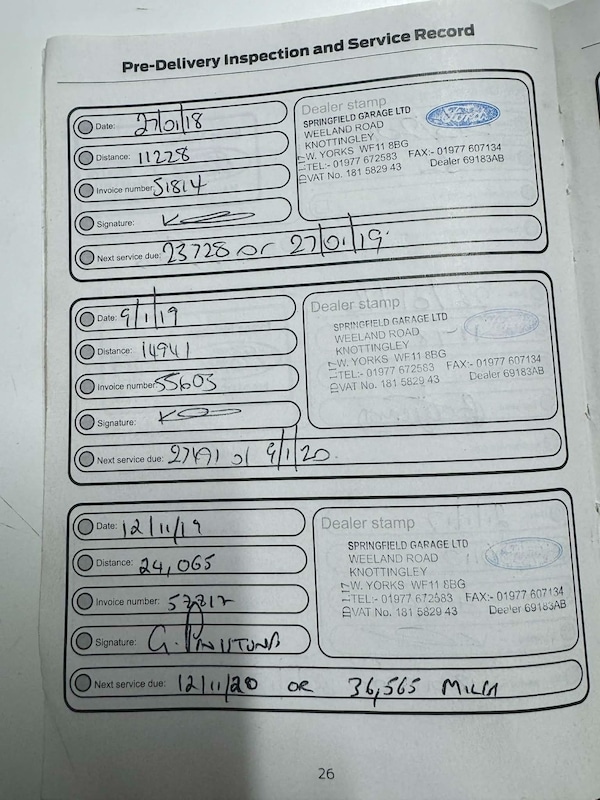 Pre-Delivery Inspection and Service Record
Date: 27/01/18
Distance: 11228
Invoice number: 51814
Signature:
Next service due: 23728 or 27/01/19
Dealer stamp
SPRINGFIELD GARAGE LTD
WEELAND ROAD
KNOTTINGLEY
W. YORKS WF11 8BG
TEL:- 01977 672583 FAX:- 01977 607134
VAT No. 181 5829 43 Dealer 69183AB
ID 117
Ford
Date: 9/1/19
Distance: 14941
Invoice number: 55603
Signature:
Next service due: 27491 or 9/1/20
Dealer stamp
SPRINGFIELD GARAGE LTD
WEELAND ROAD
KNOTTINGLEY
W. YORKS WF11 8BG
TEL:- 01977 672583 FAX:- 01977 607134
VAT No. 181 5829 43 Dealer 69183AB
ID 117
Date: 12/11/19
Distance: 24,065
Invoice number:
Signature: G.
Next service due: 12/11/20 OR 36,565 MILES
Dealer stamp
SPRINGFIELD GARAGE LTD
WEELAND ROAD
KNOTTINGLEY
W. YORKS WF11 8BG
TEL:- 01977 672583 FAX:- 01977 607134
VAT No. 181 5829 43 Dealer 69183AB
ID 117
26